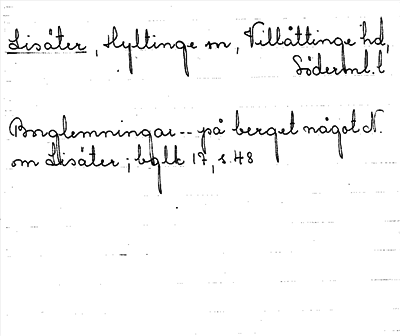 Lisäter, Hyltinge sn, Villåttinge hd,
Söderml. l
Borglemningar -- på berget något N.
om Lisäter; bglk 17, s. 48